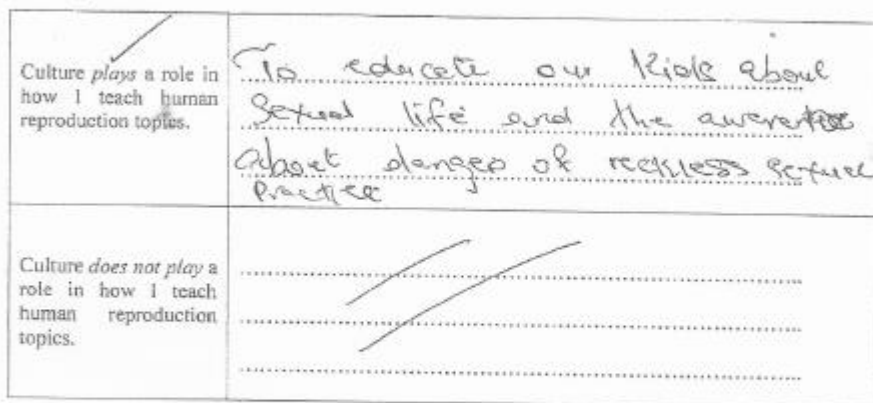 Culture plays a role in
how I teach human
reproduction topics.
To educate our Kids about
Sexual life and the awareness
about danges of reckless sexual
Practice
Culture does not play a
role in how I teach
human reproduction
topics.